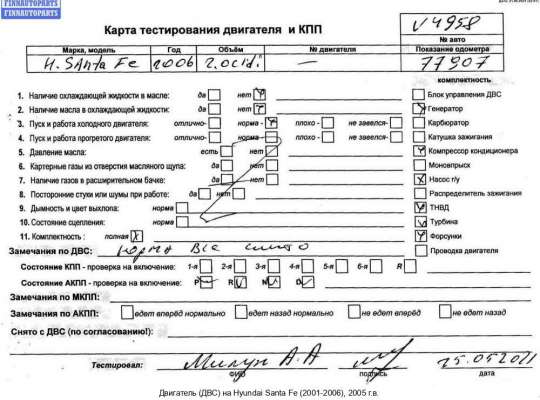 FINNAUTOPARTS
FINNAUTOPARTS
Карта тестирования двигателя и КПП
V 4958
№ авто
Марка, модель Год Объём № двигателя Показание одометра
H. SAnta Fe 2006 2.0 crdi — 77907
комплектность
1. Наличие охлаждающей жидкости в масле: да нет Блок управления ДВС
2. Наличие масла в охлаждающей жидкости: да нет Генератор
3. Пуск и работа холодного двигателя: отлично- норма - плохо - не завелся- Карбюратор
4. Пуск и работа прогретого двигателя: отлично- норма - плохо - не завелся- Катушка зажигания
5. Давление масла: есть нет Компрессор кондиционера
6. Картерные газы из отверстия масляного щупа: да нет Моновпрыск
7. Наличие газов в расширительном бачке: да нет Насос г/у
8. Посторонние стухи или шумы при работе: да нет Распределитель зажигания
9. Дымность и цвет выхлопа: норма ТНВД
10. Состояние сцепления: норма Турбина
11. Комплектность : полная Форсунки
Замечания по ДВС: норма все Проводка двигателя
Состояние КПП - проверка на включение: 1-я 2-я 3-я 4-я 5-я 6-я R
Состояние АКПП - проверка на включение: P R N D
Замечания по МКПП:
Замечания по АКПП: едет вперёд нормально едет назад нормально не едет вперёд не едет назад
Снято с ДВС (по согласованию!):
Тестировал: А.А 25.05.2021
ФИО подпись дата
Двигатель (ДВС) на Hyundai Santa Fe (2001-2006), 2005 г.в.